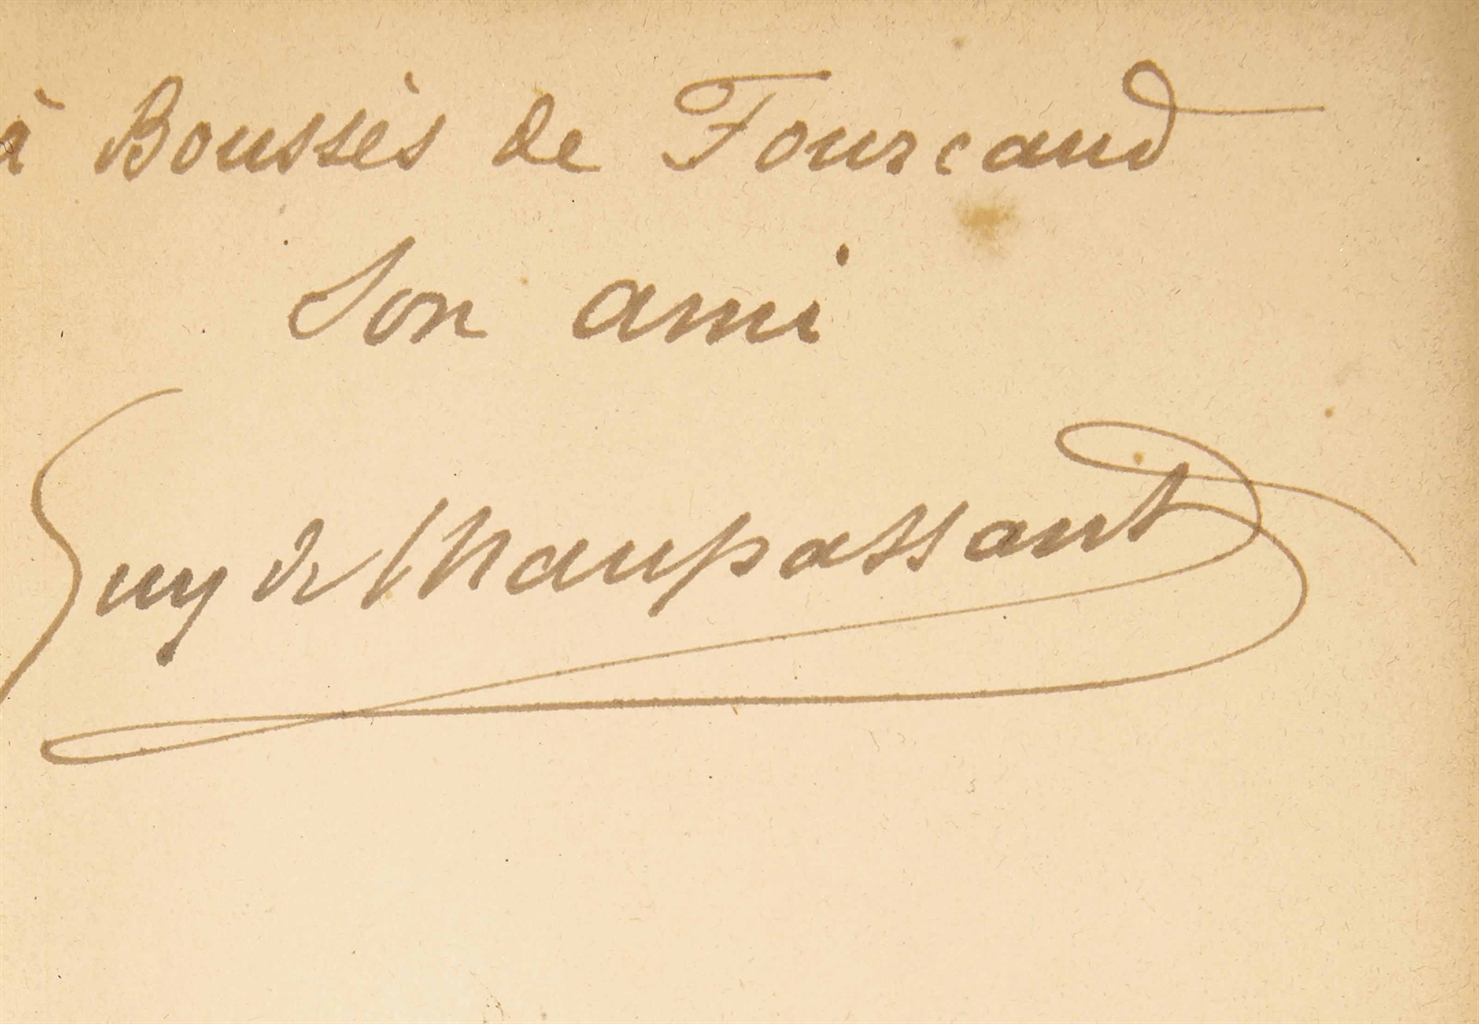 à Boussès de Fourcaud
son ami
Guy de Maupassant